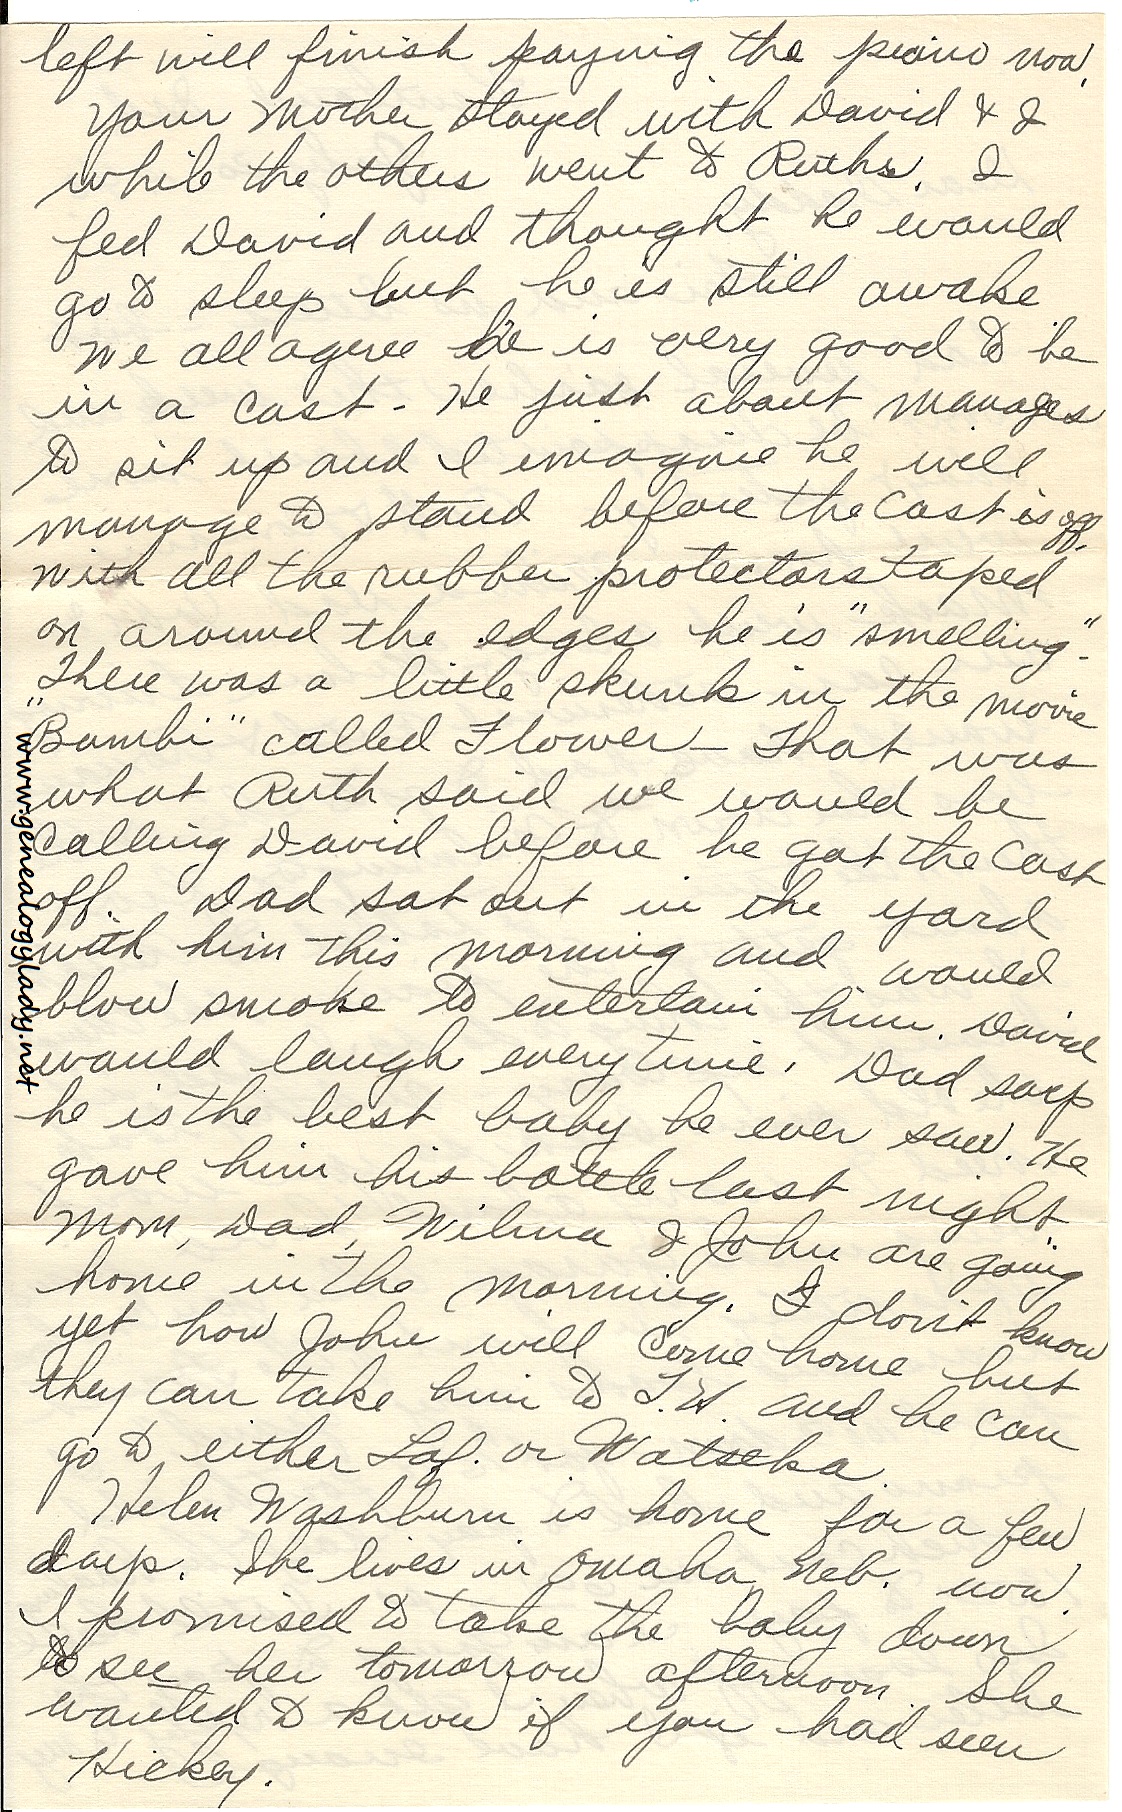 left will finish paying the piano now.
Your Mother stayed with David & I
while the others went to Ruths. I
fed David and thought he would
go to sleep but he is still awake
We all agree he is very good to be
in a cast - He just about manages
to sit up and I imagine he will
manage to stand before the cast is off.
With all the rubber protectors taped
on around the edges he is "smelling".
There was a little skunk in the movie
"Bambi" called Flower - That was
what Ruth said we would be
calling David before he got the cast
off. Dad sat out in the yard
with him this morning and would
blow smoke to entertain him. David
would laugh every time. Dad says
he is the best baby he ever saw. He
gave him his bottle last night
Mom, Dad, Wilma & John are going
home in the morning. I don't know
yet how John will come home but
they can take him to T.H. and he can
go to either Laf. or Watseka.
Helen Washburn is home for a few
days. She lives in Omaha, Neb. now.
I promised to take the baby down
to see her tomorrow afternoon. She
wanted to know if you had seen
Hickey.
www.genealogylady.net